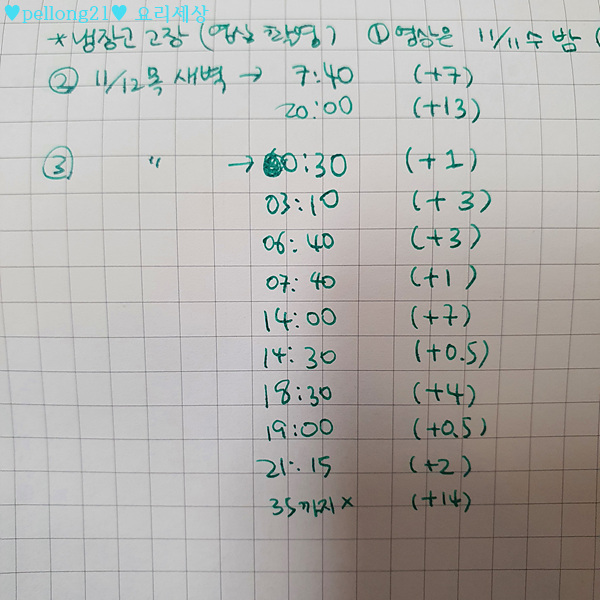 ♥pellong21♥ 요리세상
*냉장고 고장 (영상 촬영) ① 영상은 11/11 수 밤 (
② 11/12 목 새벽 → 7:40 (+7)
20:00 (+13)
③ " → 00:30 (+1)
03:10 (+3)
06:40 (+3)
07:40 (+1)
14:00 (+7)
14:30 (+0.5)
18:30 (+4)
19:00 (+0.5)
21:15 (+2)
35까지 x (+14)